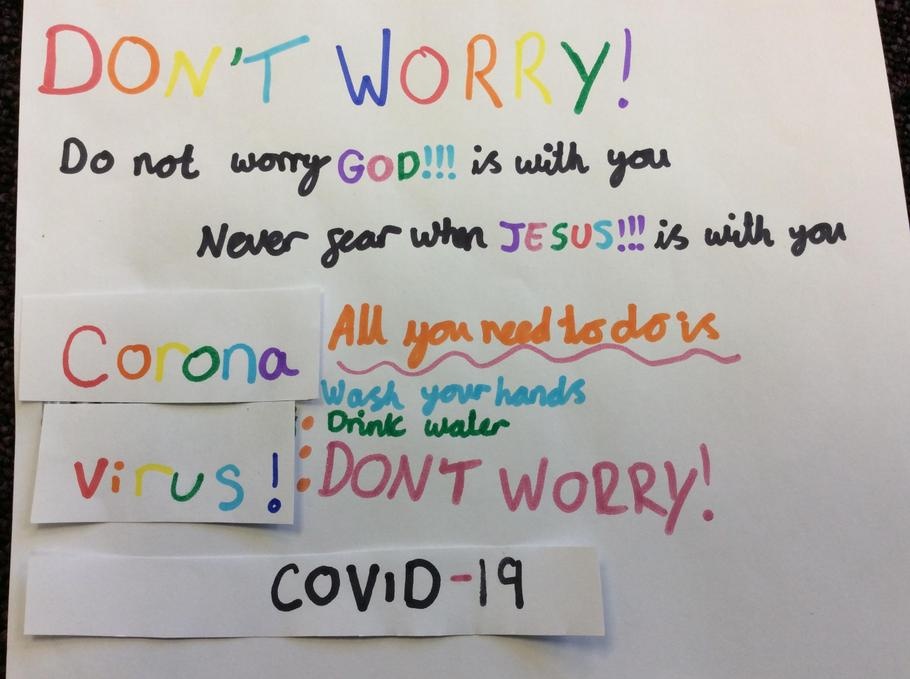 DON'T WORRY!
Do not worry GOD!!! is with you
Never fear when JESUS!!! is with you
Corona
Virus!
All you need to do is
Wash your hands
Drink water
DON'T WORRY!
COVID-19